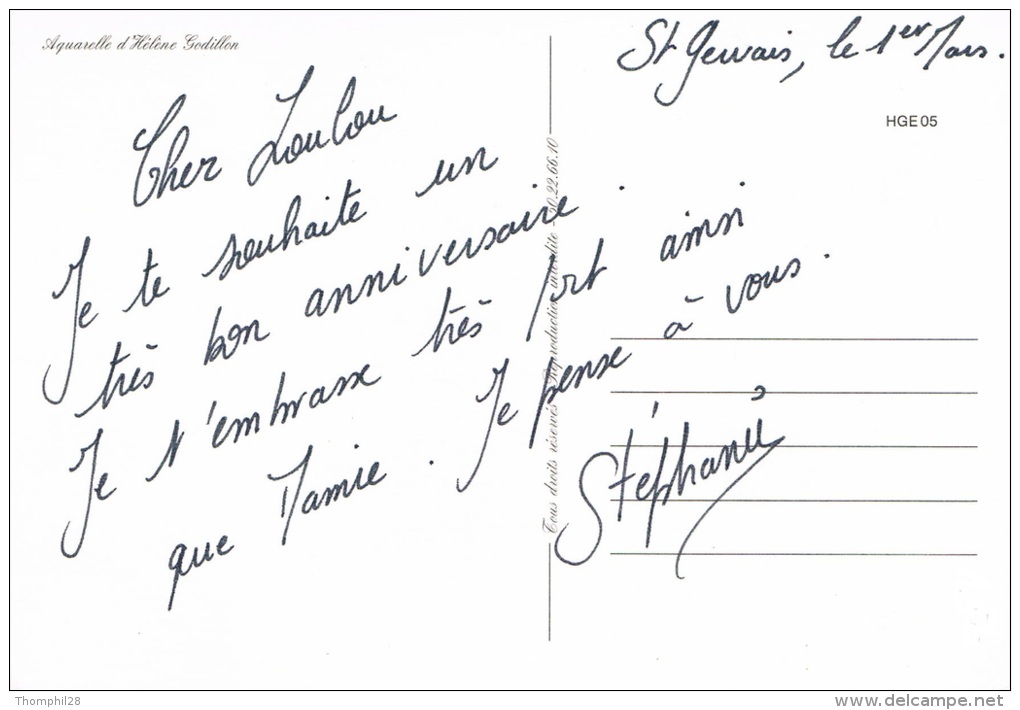 Aquarelle d'Hélène Godillon
St Gervais, le 1er Mars.
HGE 05
Cher Loulou
Je te souhaite un
très bon anniversaire.
Je t'embrasse très fort ainsi
que Mamie. Je pense à vous.
Stéphanie
Tous droits réservés - Reproduction interdite - 20.22.66.10
Thomphil28
delcampe.net